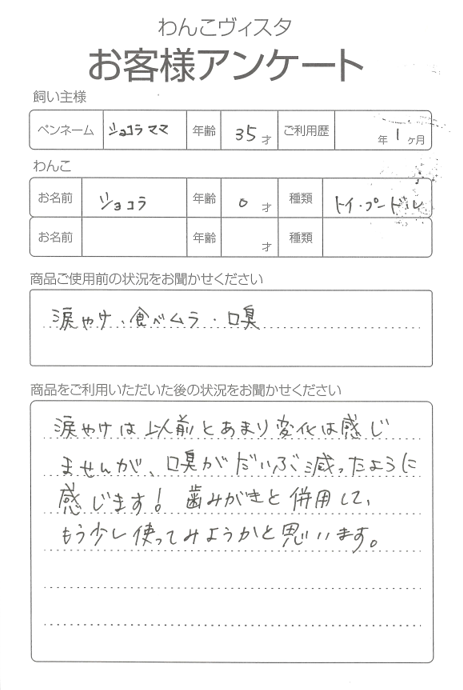 わんこヴィスタ
お客様アンケート
飼い主様
ペンネーム ショコラママ 年齢 35才 ご利用歴 年 1ヶ月
わんこ
お名前 ショコラ 年齢 0才 種類 トイ・プードル
お名前 年齢 才 種類
商品ご使用前の状況をお聞かせください
涙やけ・食べムラ・口臭
商品をご利用いただいた後の状況をお聞かせください
涙やけは以前とあまり変化は感じ
ませんが、口臭がだいぶ減ったように
感じます! 歯みがきと併用して、
もう少し使ってみようかと思います。